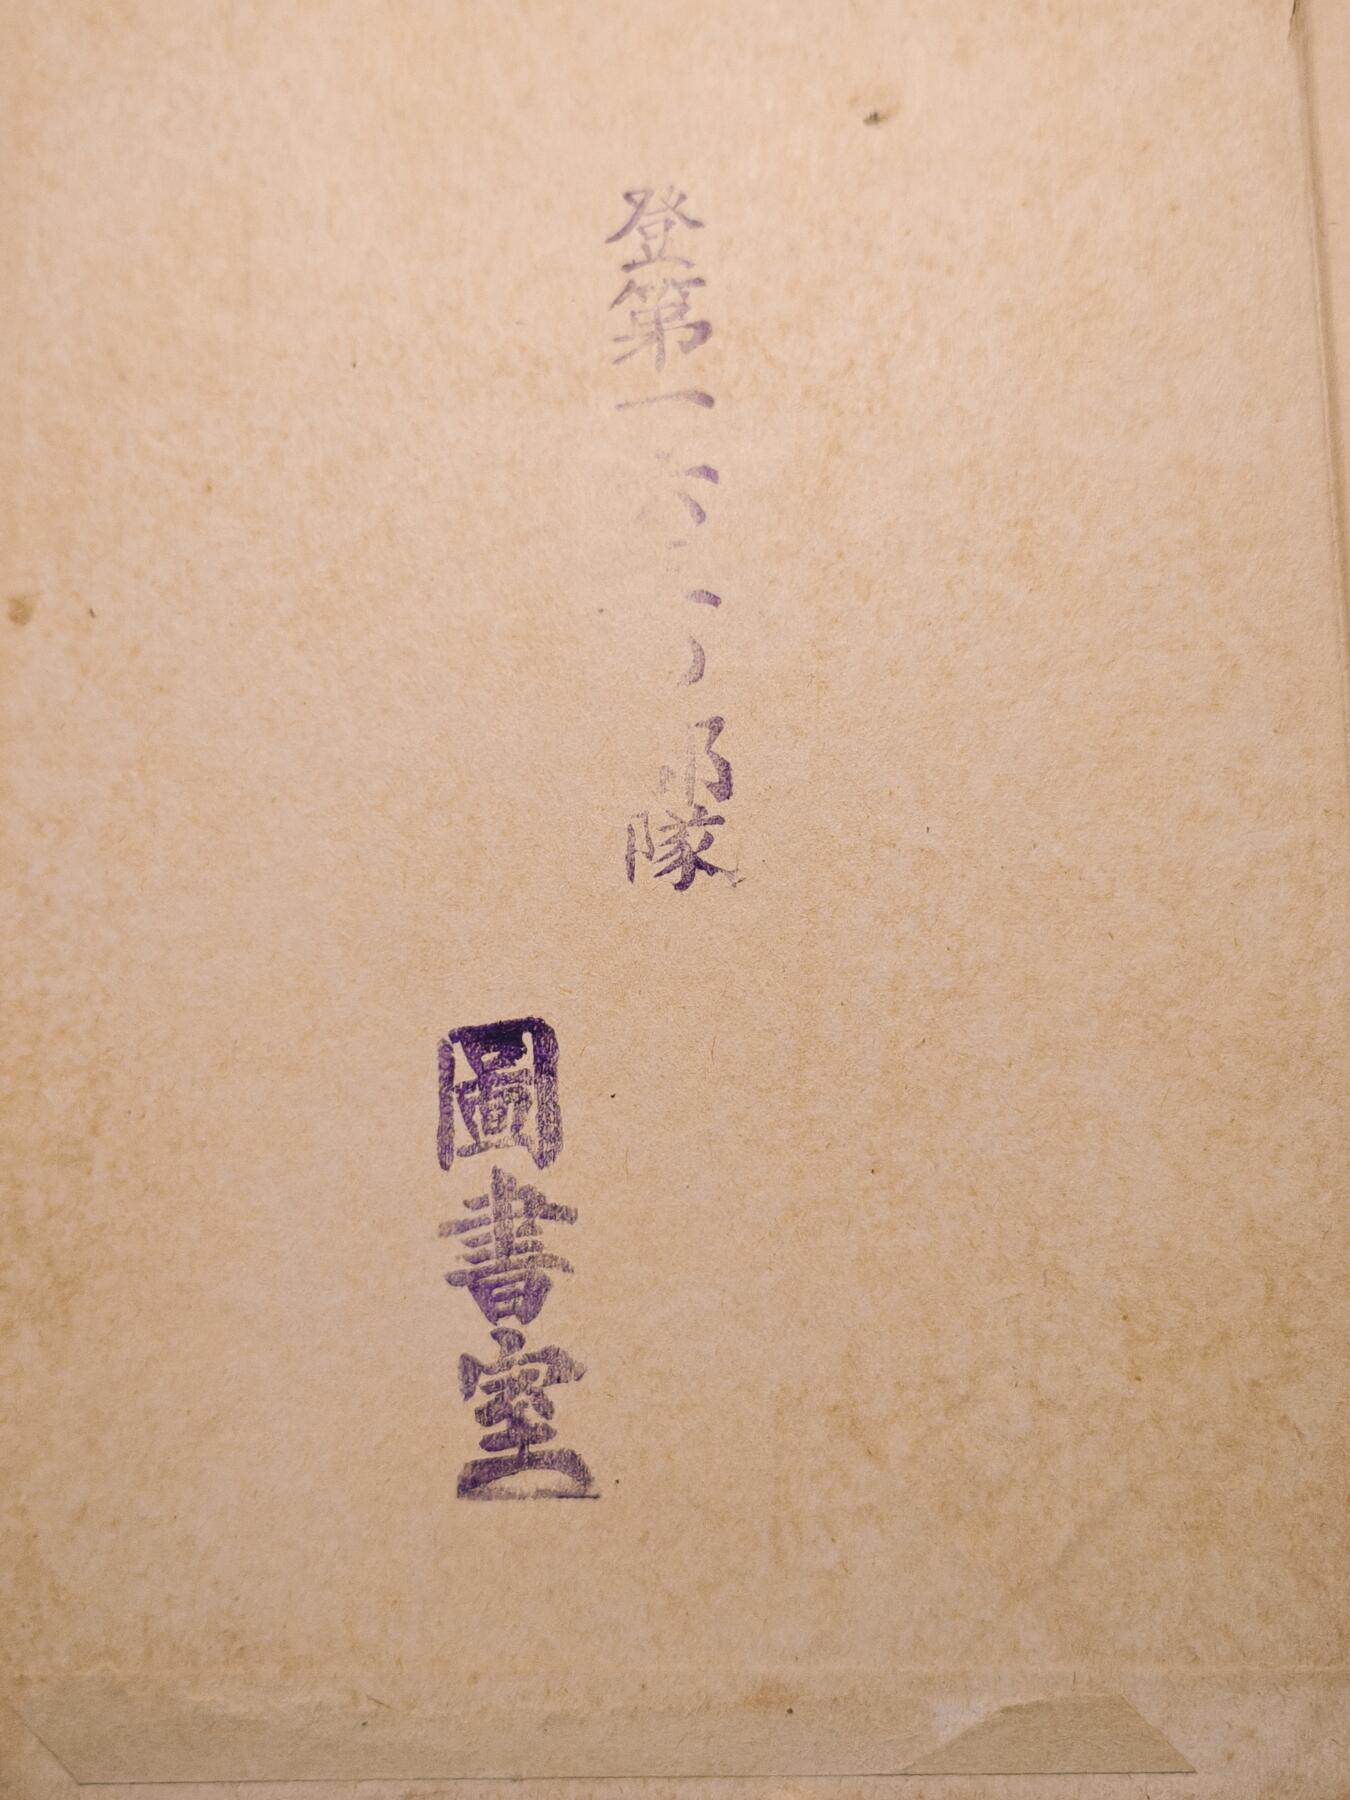 登第一六部隊
圖書室